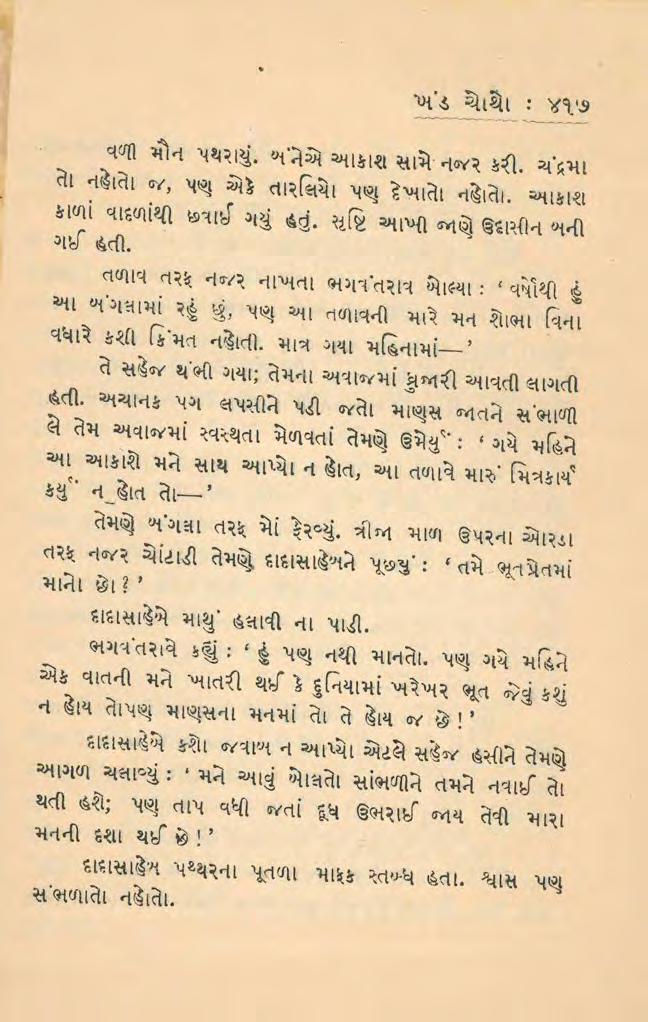 ખંડ ચોથો : ૪૧૭
વળી મૌન પથરાયું. બંનેએ આકાશ સામે નજર કરી. ચંદ્રમા
તો નહોતો જ, પણ એકે તારલિયો પણ દેખાતો નહોતો. આકાશ
કાળાં વાદળાંથી છવાઈ ગયું હતું. સૃષ્ટિ આખી જાણે ઉદાસીન બની
ગઈ હતી.
તળાવ તરફ નજર નાખતા ભગવંતરાવ બોલ્યા : ‘ વર્ષોથી હું
આ બંગલામાં રહું છું, પણ આ તળાવની મારે મન શોભા વિના
વધારે કશી કિંમત નહોતી. માત્ર ગયા મહિનામાં—’
તે સહેજ થંભી ગયા; તેમના અવાજમાં ધ્રુજારી આવતી લાગતી
હતી. અચાનક પગ લપસીને પડી જતો માણસ જાતને સંભાળી
લે તેમ અવાજમાં સ્વસ્થતા મેળવતાં તેમણે ઉમેર્યું : ‘ ગયે મહિને
આ આકાશે મને સાથ આપ્યો ન હોત, આ તળાવે મારું મિત્રકાર્ય
કર્યું ન હોત તો—’
તેમણે બંગલા તરફ મોં ફેરવ્યું. ત્રીજા માળ ઉપરના ઓરડા
તરફ નજર ચોંટાડી તેમણે દાદાસાહેબને પૂછ્યું : ‘ તમે ભૂતપ્રેતમાં
માનો છો ? ’
દાદાસાહેબે માથું હલાવી ના પાડી.
ભગવંતરાવે કહ્યું : ‘ હું પણ નથી માનતો. પણ ગયે મહિને
એક વાતની મને ખાતરી થઈ કે દુનિયામાં ખરેખર ભૂત જેવું કશું
ન હોય તોપણ માણસના મનમાં તો તે હોય જ છે ! ’
દાદાસાહેબે કશો જવાબ ન આપ્યો એટલે સહેજ હસીને તેમણે
આગળ ચલાવ્યું : ‘ મને આવું બોલતો સાંભળીને તમને નવાઈ તો
થતી હશે; પણ તાપ વધી જતાં દૂધ ઉભરાઈ જાય તેવી મારા
મનની દશા થઈ છે ! ’
દાદાસાહેબ પથ્થરના પૂતળા માફક સ્તબ્ધ હતા. શ્વાસ પણ
સંભળાતો નહોતો.